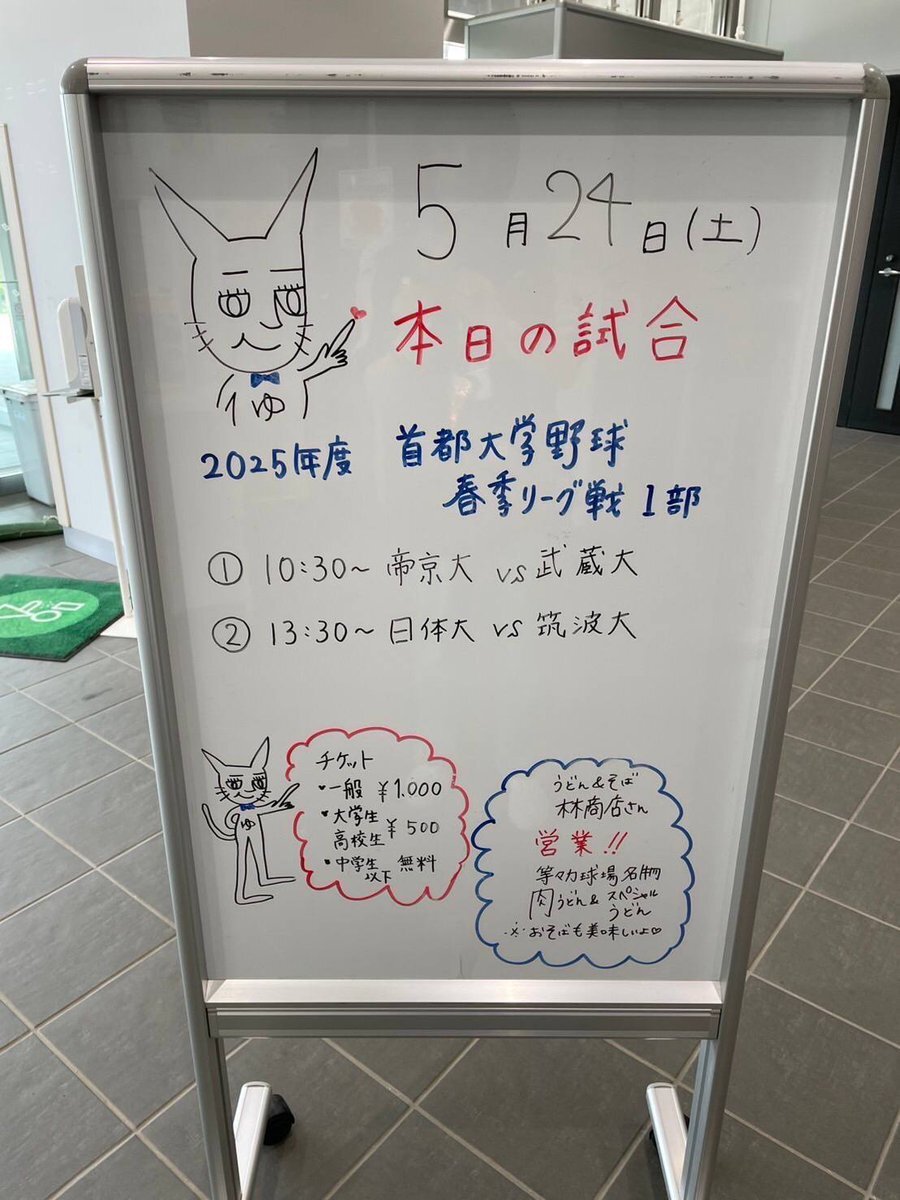 5月24日(土)
本日の試合
ゆ
2025年度 首都大学野球
春季リーグ戦 1部
① 10:30~ 帝京大 vs 武蔵大
② 13:30~ 日体大 vs 筑波大
ゆ
チケット
・一般 ¥1.000
・大学生
高校生 ¥500
・中学生
以下 無料
うどん&そば
林商店さん
営業!!
等々力球場名物
肉うどん&スペシャル
うどん
※おそばも美味しいよ♡